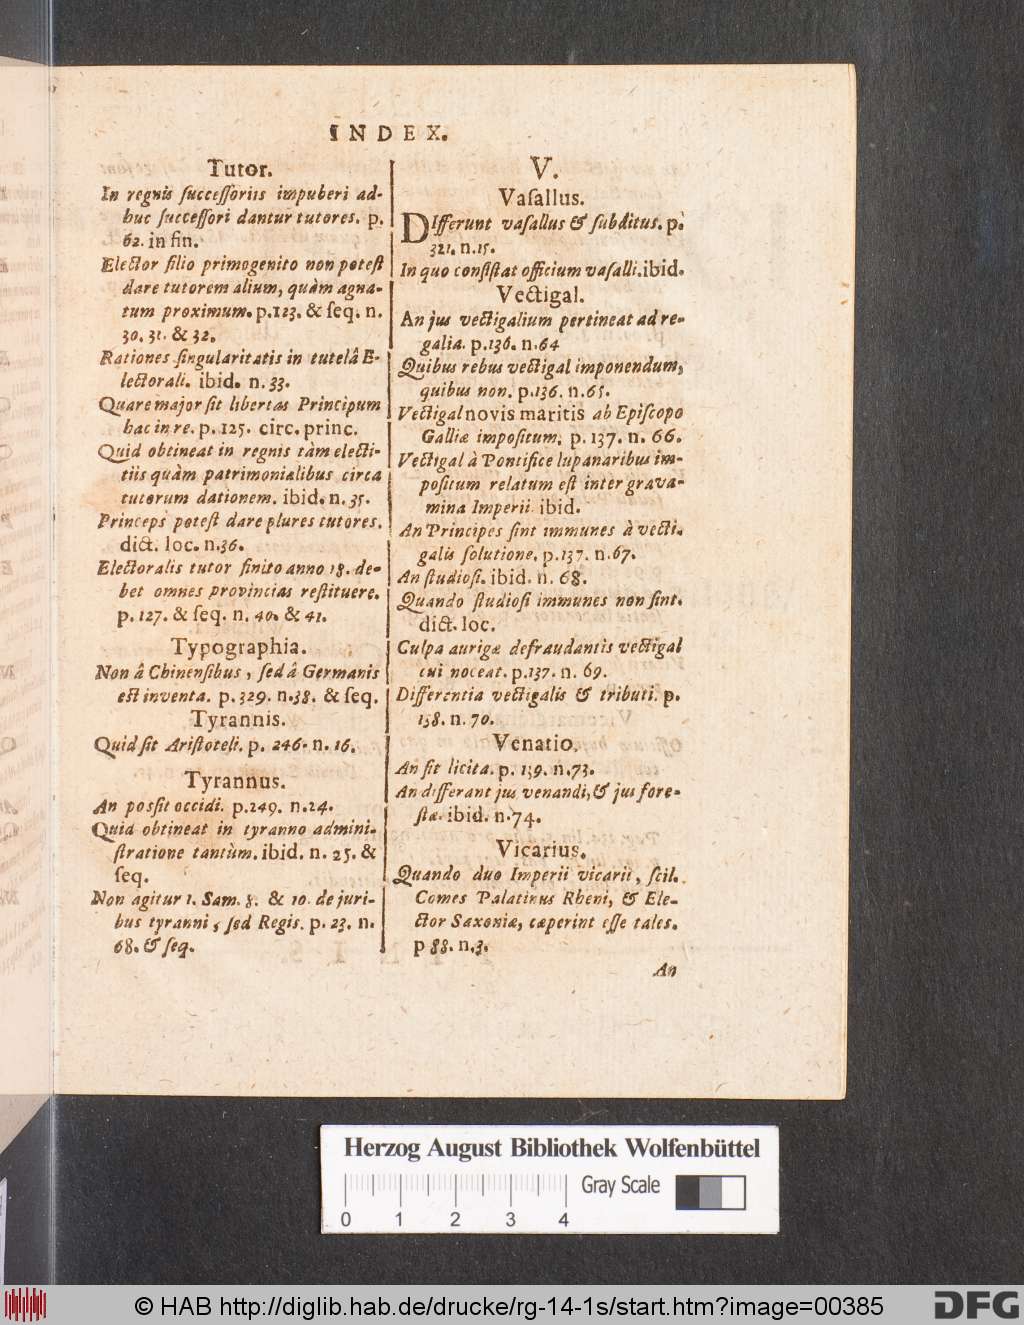 INDEX.
Tutor.
In regnis ſucceſſoriis impuberi ad-
huc ſucceſſori dantur tutores. p.
62. in fin.
Elector filio primogenito non poteſt
dare tutorem alium, quàm agna-
tum proximum. p.123. & ſeq. n.
30. 31. & 32.
Rationes ſingularitatis in tutelâ E-
lectorali. ibid. n. 33.
Quare major ſit libertas Principum
hac in re. p. 125. circ. princ.
Quid obtineat in regnis tàm electi-
tiis quàm patrimonialibus circa
tutorum dationem. ibid. n. 35.
Princeps poteſt dare plures tutores.
dict. loc. n.36.
Electoralis tutor finito anno 18. de-
bet omnes provincias reſtituere.
p. 127. & ſeq. n. 40. & 41.
Typographia.
Non â Chinenſibus, ſed â Germanis
eſt inventa. p. 329. n.38. & ſeq.
Tyrannis.
Quid ſit Ariſtoteli. p. 246. n. 16.
Tyrannus.
An poſſit occidi. p.249. n.24.
Quid obtineat in tyranno admini-
ſtratione tantùm. ibid. n. 25. &
ſeq.
Non agitur 1. Sam. 8. & 10. de juri-
bus tyranni, ſed Regis. p. 23. n.
68. & ſeq.
V.
Vaſallus.
DIfferunt vaſallus & ſubditus. p.
321. n.15.
In quo conſiſtat officium vaſalli. ibid.
Vectigal.
An jus vectigalium pertineat ad re-
galia. p.136. n.64
Quibus rebus vectigal imponendum,
quibus non. p.136. n.65.
Vectigal novis maritis ab Epiſcopo
Galliæ impoſitum. p. 137. n. 66.
Vectigal à Pontifice lupanaribus im-
poſitum relatum eſt inter grava-
mina Imperii. ibid.
An Principes ſint immunes à vecti-
galis ſolutione. p.137. n.67.
An ſtudioſi. ibid. n. 68.
Quando ſtudioſi immunes non ſint.
dict. loc.
Culpa aurigæ defraudantis vectigal
cui noceat. p.137. n. 69.
Differentia vectigalis & tributi. p.
138. n. 70.
Venatio.
An ſit licita. p. 139. n.73.
An differant jus venandi, & jus fore-
ſtæ. ibid. n.74.
Vicarius.
Quando duo Imperii vicarii, ſcil.
Comes Palatinus Rheni, & Ele-
ctor Saxoniæ, cæperint eſſe tales.
p 88. n.3.
An
Herzog August Bibliothek Wolfenbüttel
Gray Scale
0 1 2 3 4
© HAB http://diglib.hab.de/drucke/rg-14-1s/start.htm?image=00385
DFG